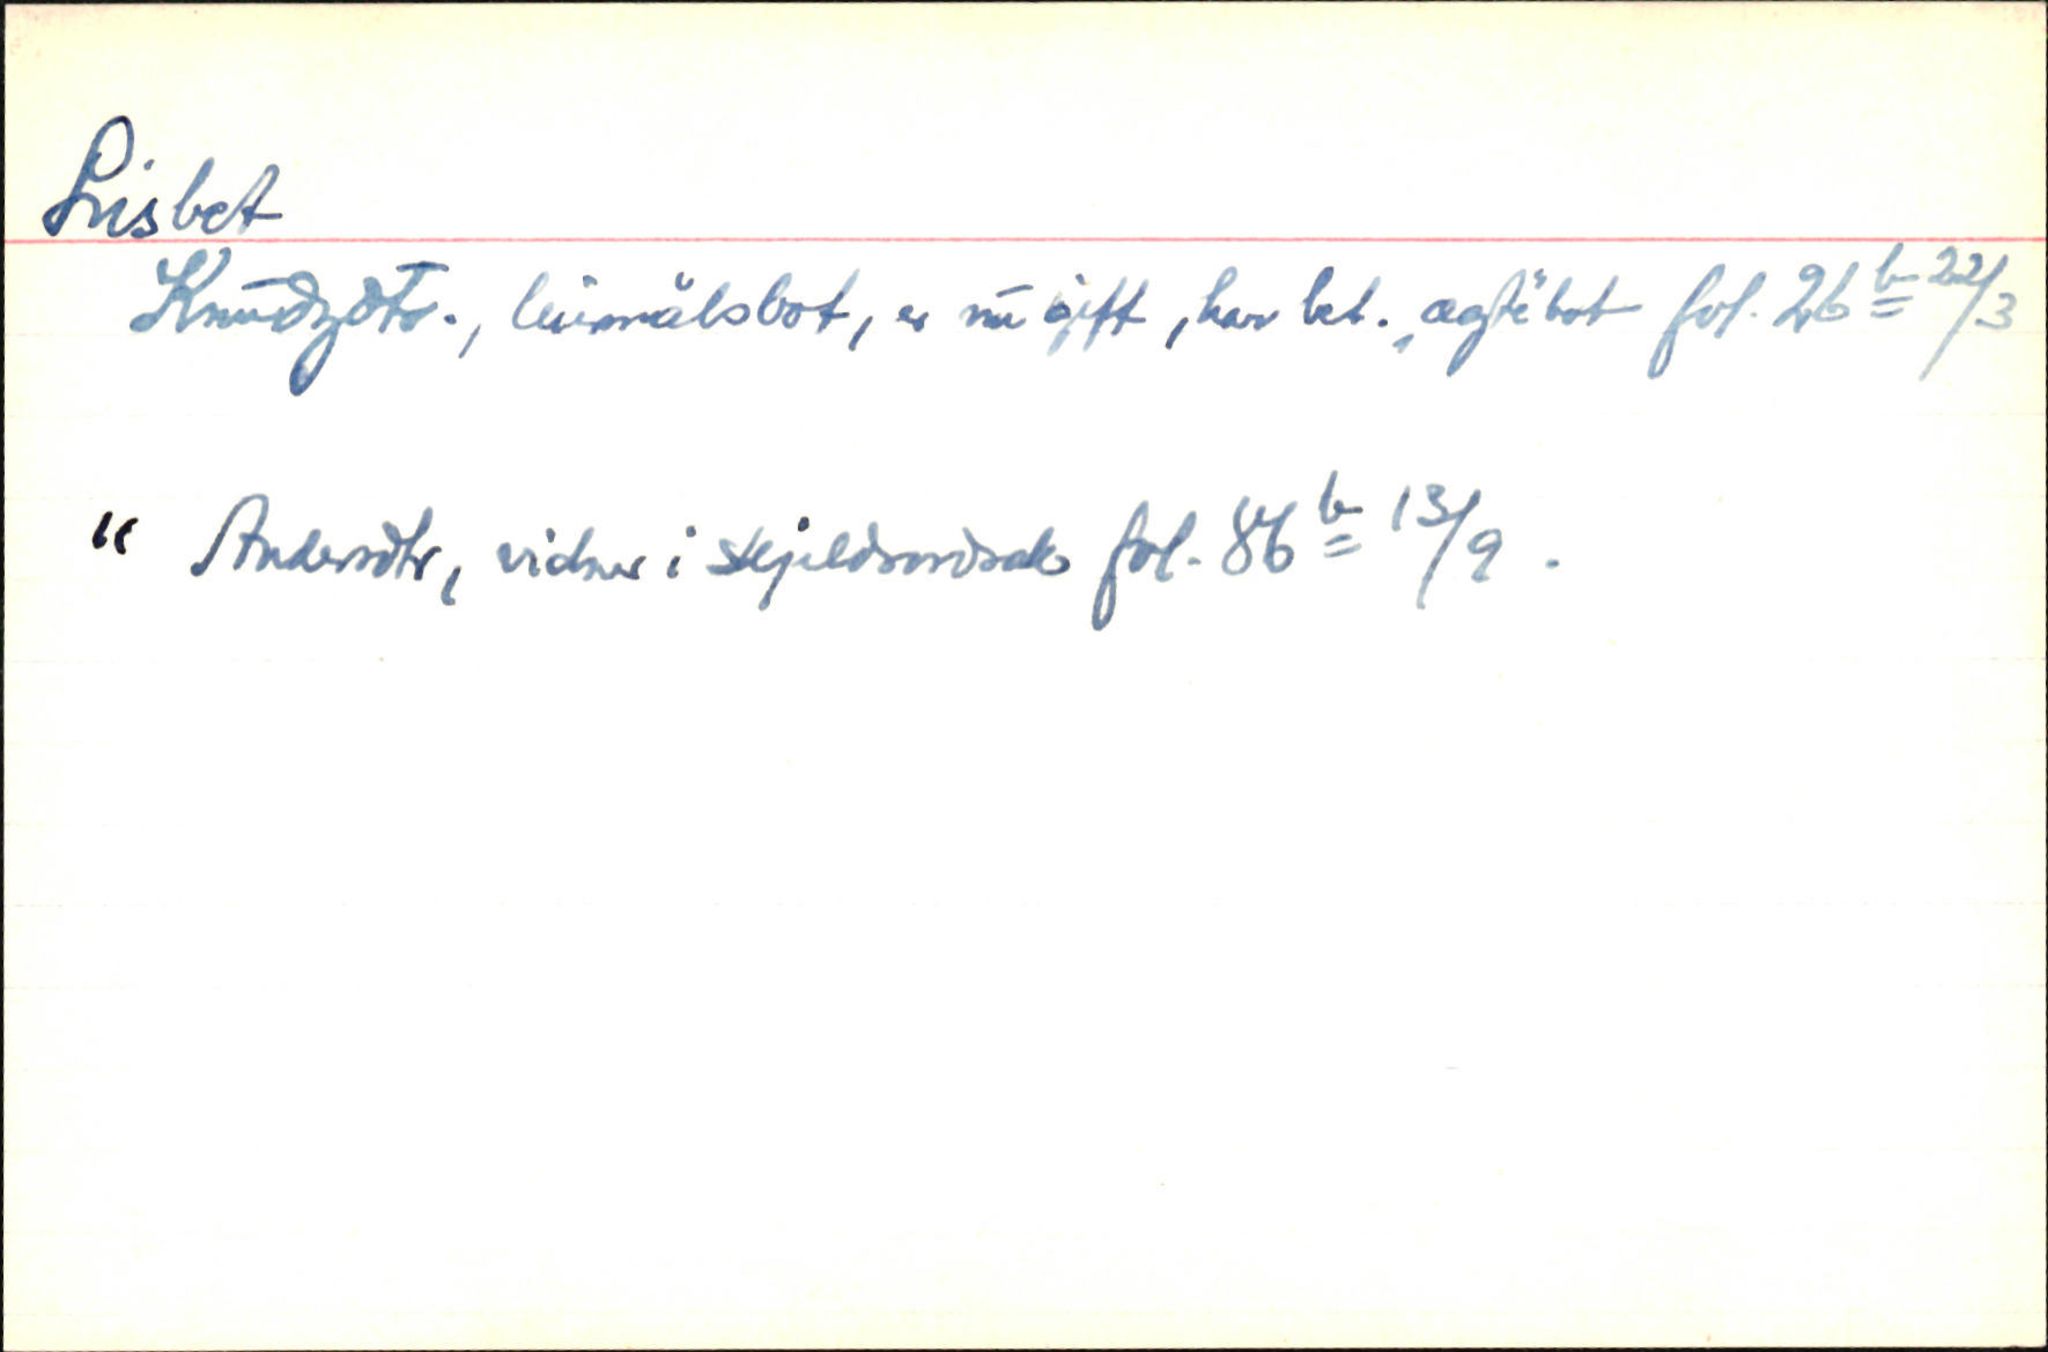 Lisbet
Knudzdtr., leiermålsbot, er nu gift, har bet. ægtebot fol. 26 b 22/3
" Andersdtr, vidner i skjeldsordsak fol. 86 b 13/9.